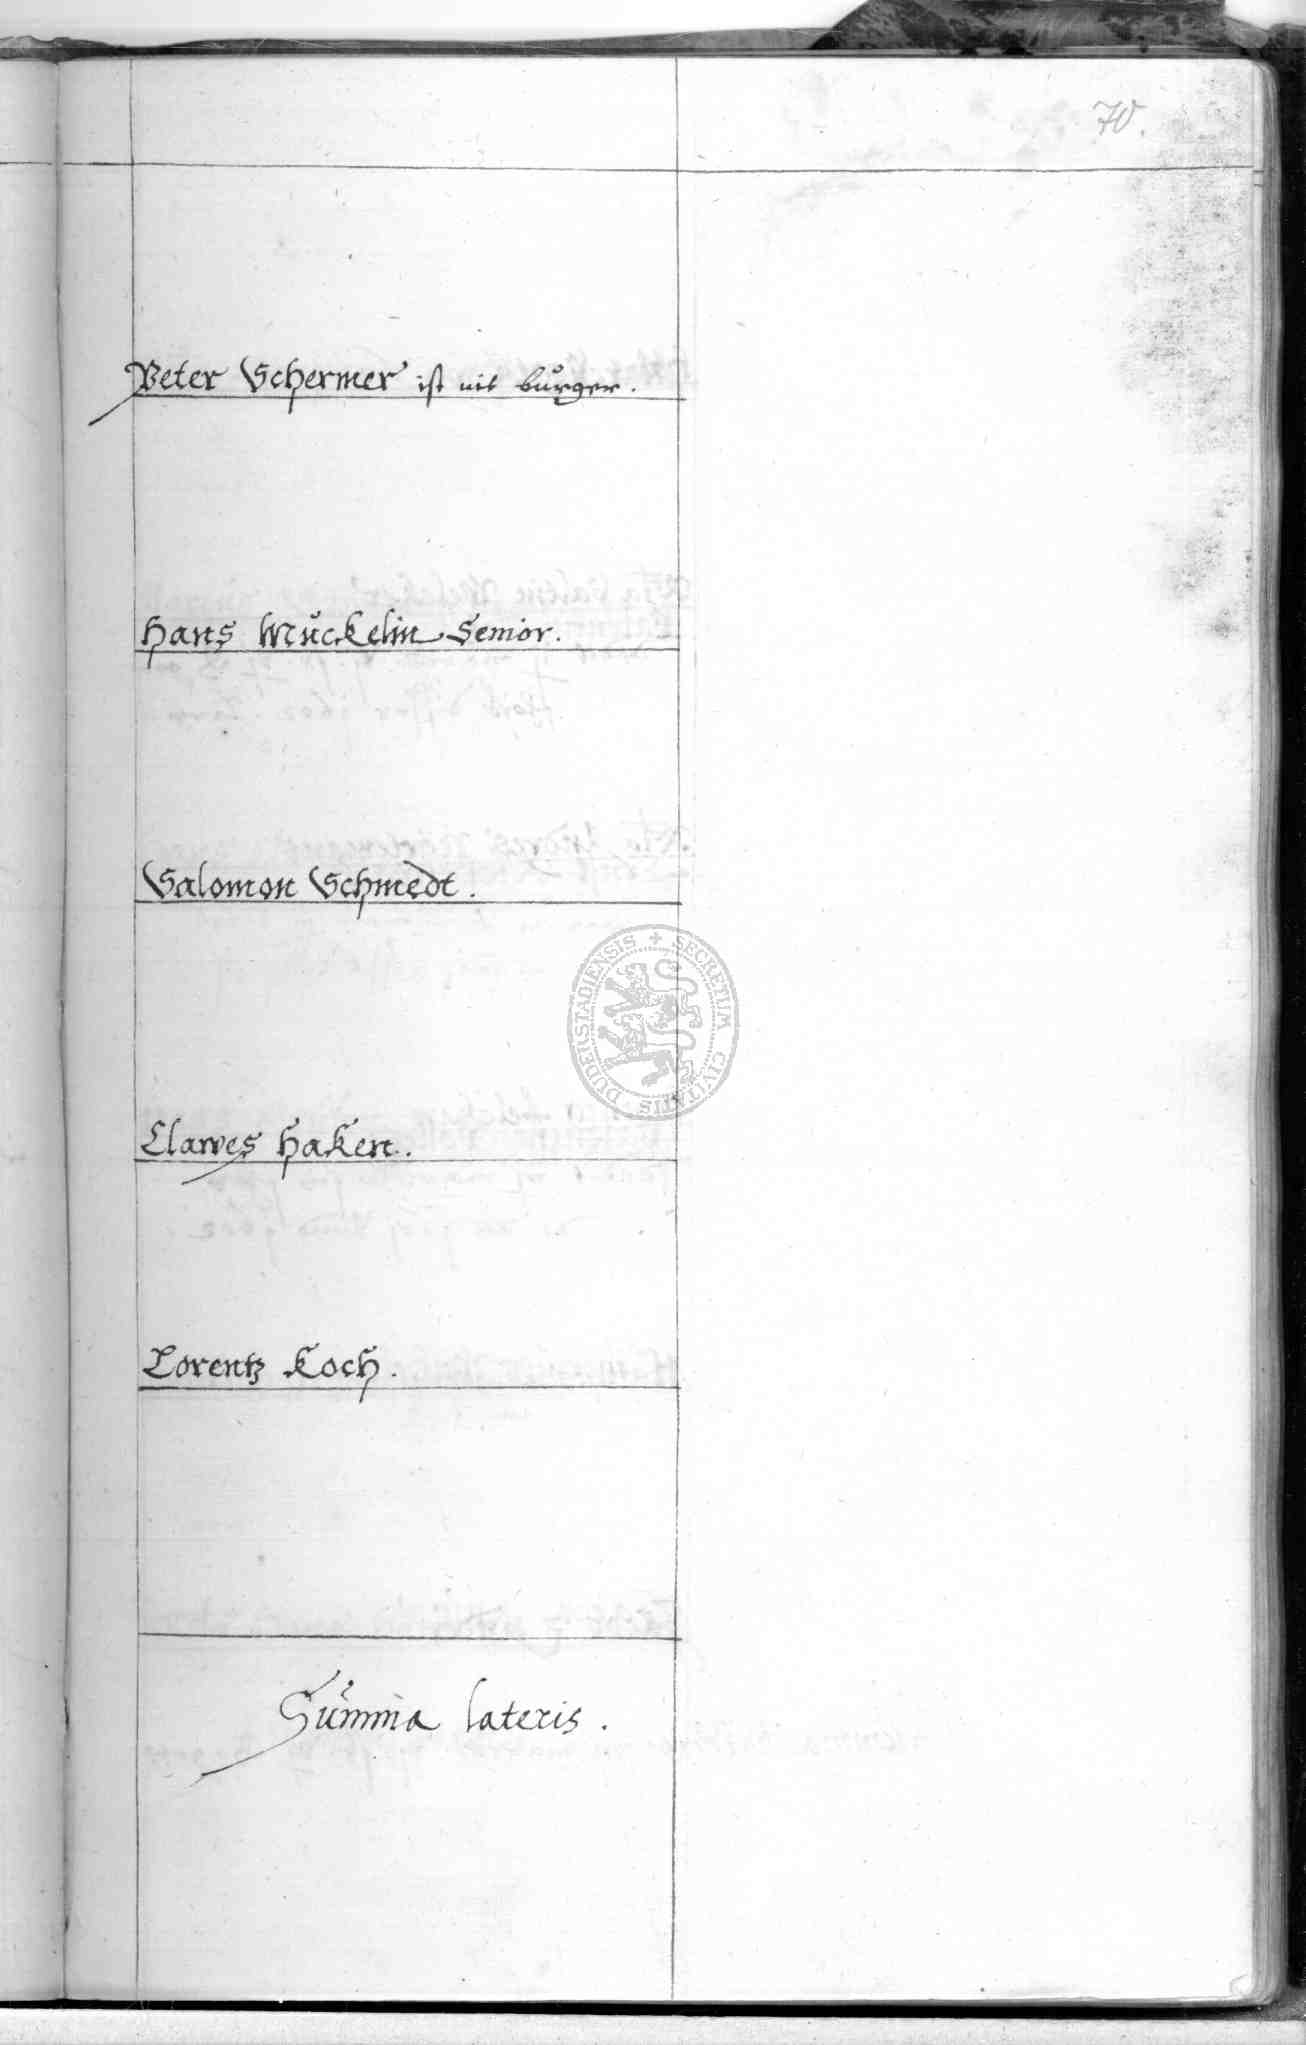 70.
Peter Schermer ist nit burger.
Hans Muckelin Senior.
Salomon Schmedt.
SECRETUM CIVITATIS DUDERSTADIENSIS
Clawes Haken.
Lorentz Koch.
Summa lateris.